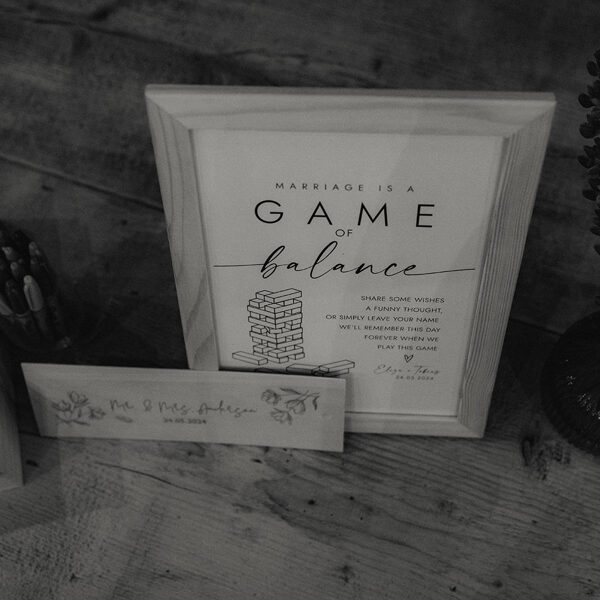 MARRIAGE IS A
GAME
OF
balance
SHARE SOME WISHES
A FUNNY THOUGHT,
OR SIMPLY LEAVE YOUR NAME.
WE'LL REMEMBER THIS DAY
FOREVER WHEN WE
PLAY THIS GAME.
24.05.2024
Mr. & Mrs. Anderson
24.05.2024